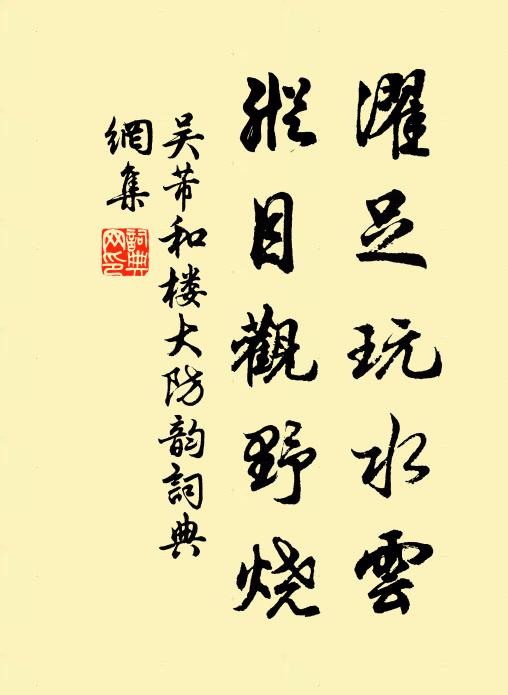 濯足玩水雲
縱目觀野烧
吴芾和楼大防韵詞典
網集
詞典
网印